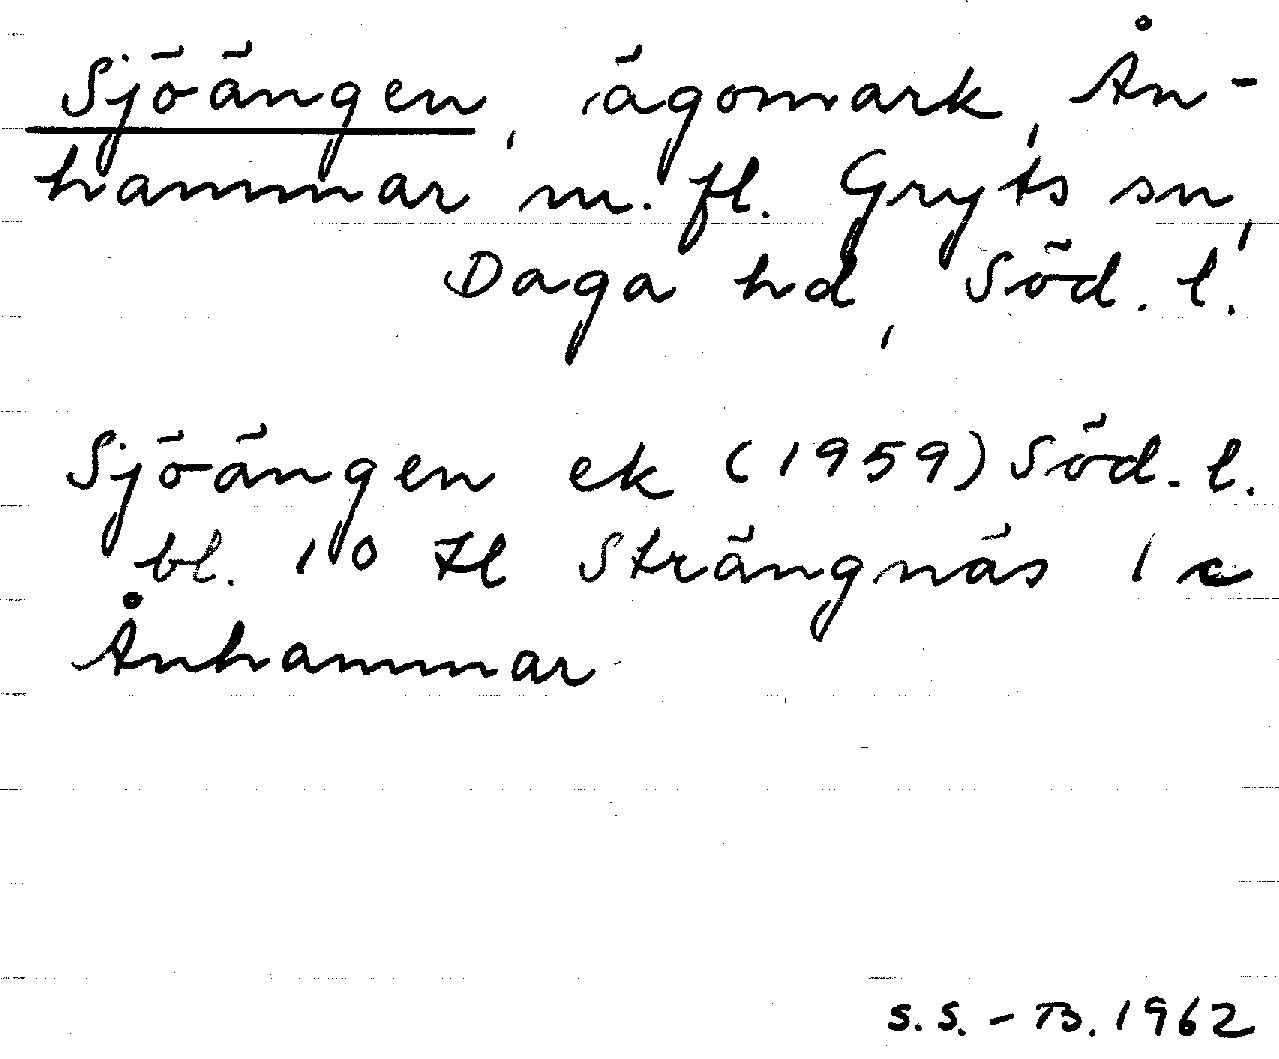 Sjöängen, ägomark, Ån-
hammar m. fl. Gryts sn,
Daga hd, Söd. l.
Sjöängen ek (1959) Söd. l.
bl. 10 tl Strängnäs 1 c
Ånhammar
S.S. - B. 1962